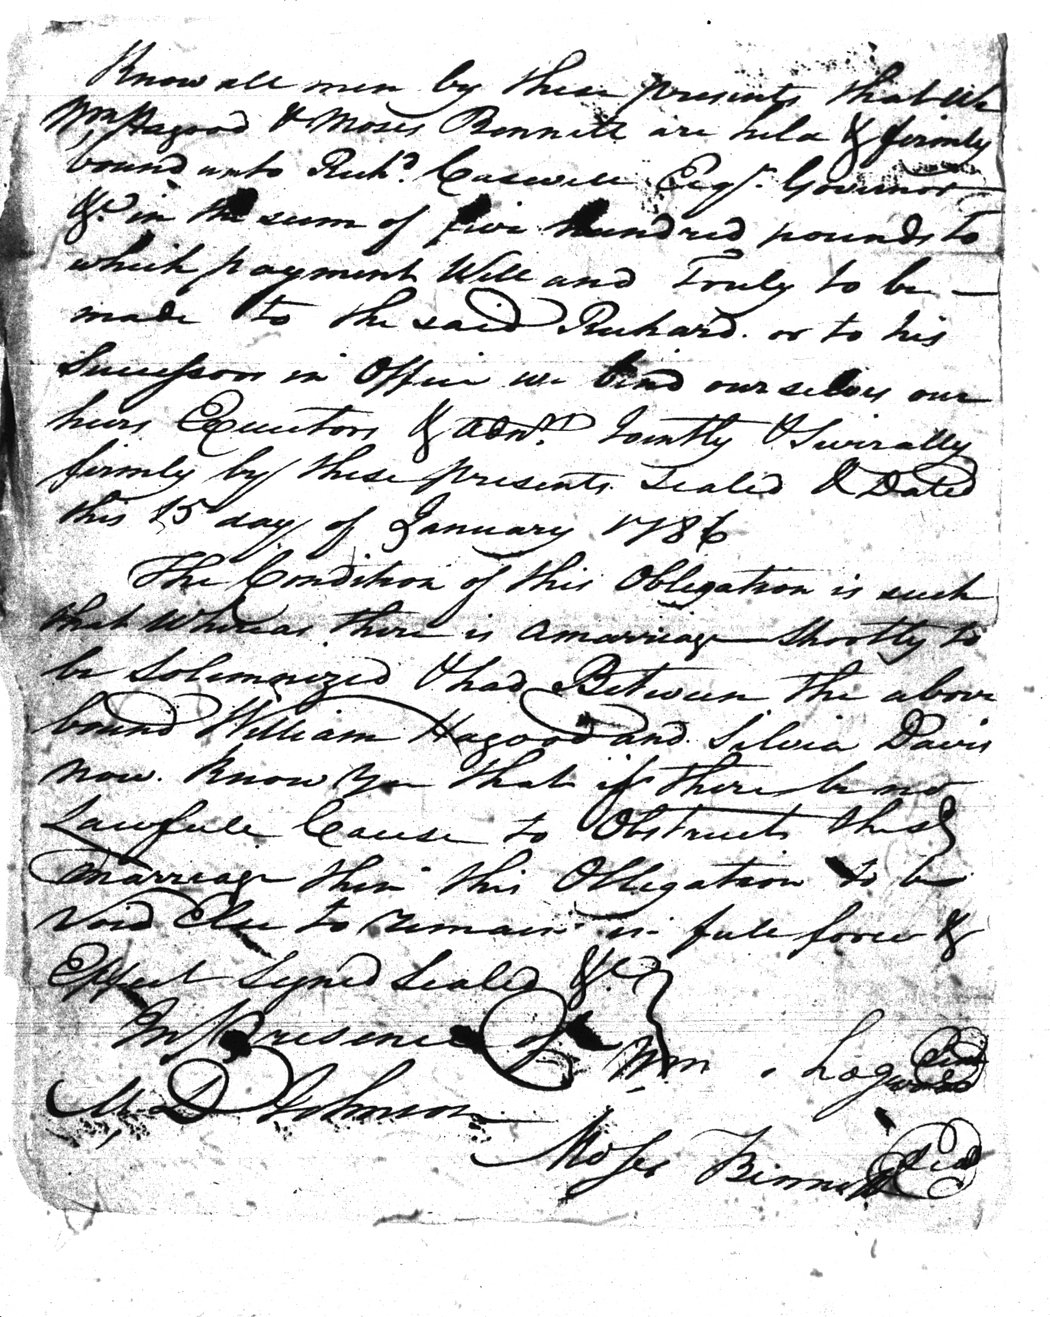 Know all men by these presents that We
Wm Hagood & Moses Bennett are held & firmly
bound unto Richd. Caswell Esqr. Governor
&c in the sum of five hundred pounds to
which payment Well and Truly to be
made to the said Richard or to his
Successors in Office we bind ourselves our
heirs Executors & Admrs Jointly & Severally
firmly by these presents Sealed & Dated
this 15 day of January 1786
The Condition of this Obligation is such
that Whereas there is a marriage Shortly to
be Solemnized & had Between the above
bound William Hagood and Silvia Davis
now know ye that if there be no
Lawfull Cause to Obstruct this
marriage then this Obligation to be
Void Else to remain in full force &
Effect Signed Sealed &c
In Presence of
Wm
M. D. Johnson
Moses Bennett